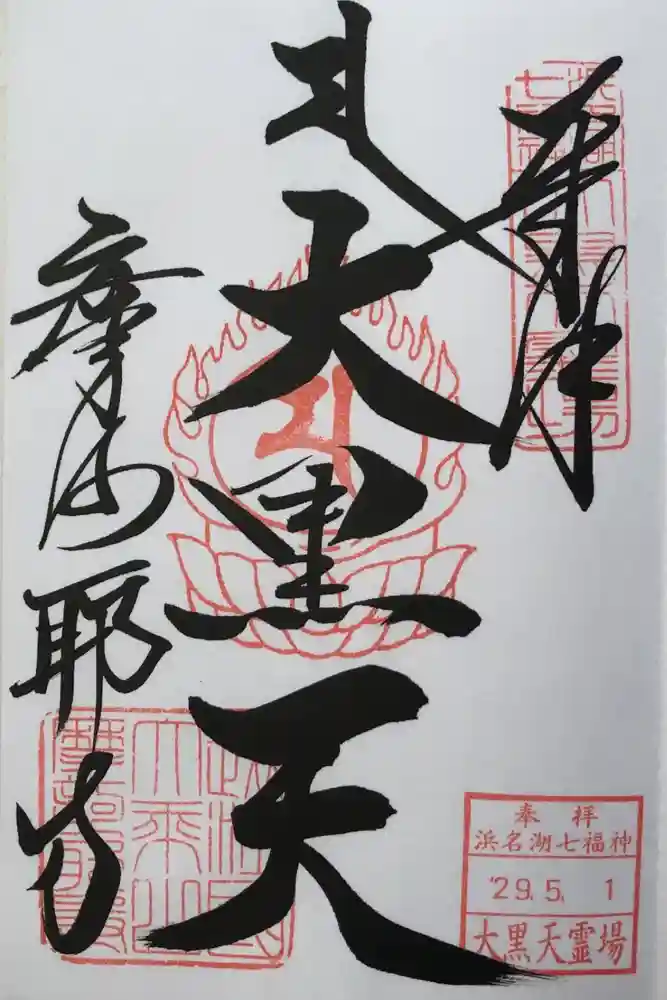 奉拝
大黒天
摩訶耶寺
奉拝
浜名湖七福神
'29.5. 1
大黒天霊場